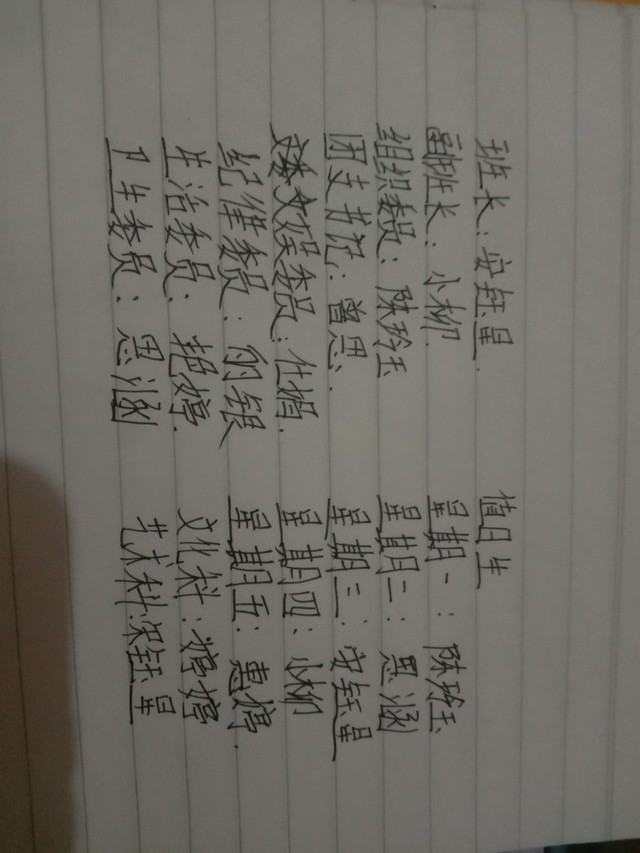 班长：安钰呈.
副班长：小柳.
组织委员：陈玲玉
团支书记：曾思.
文娱委员：仕娟.
纪律委员：俐银
生活委员：艳婷.
卫生委员：思涵
值日生
星期一：陈玲玉
星期二：思涵
星期三：安钰呈
星期四：小柳
星期五：惠婷.
文化科：婷婷
艺术科：宋钰呈